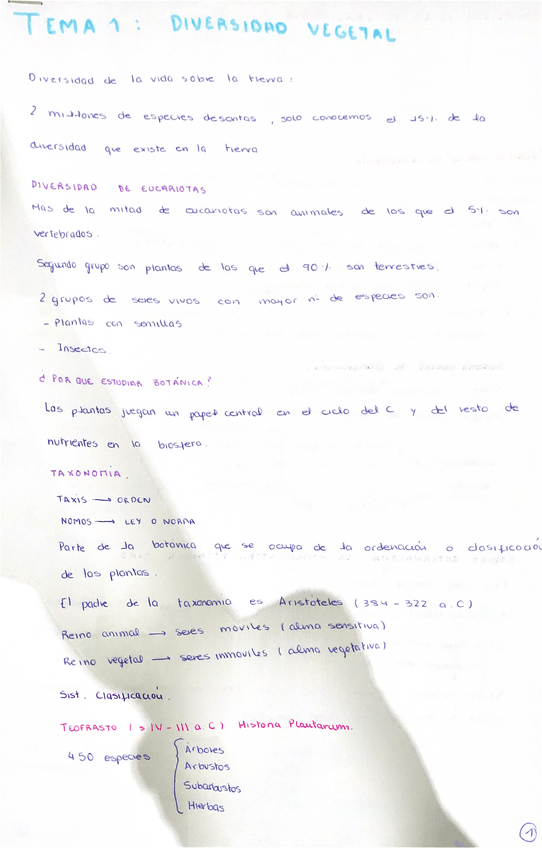 TEMA 1: DIVERSIDAD VEGETAL
Diversidad de la vida sobre la tierra:
2 millones de especies descritas, solo conocemos el 15% de la
diversidad que existe en la tierra
DIVERSIDAD DE EUCARIOTAS
Mas de la mitad de eucariotas son animales de los que el 5% son
vertebrados.
Segundo grupo son plantas de las que el 90% son terrestres.
2 grupos de seres vivos con mayor nº de especies son:
- Plantas con semillas
- Insectos
¿POR QUE ESTUDIAR BOTÁNICA?
Las plantas juegan un papel central en el ciclo del C y del resto de
nutrientes en la biosfera.
TAXONOMÍA.
TAXIS → ORDEN
NOMOS → LEY O NORMA
Parte de la botánica que se ocupa de la ordenación o clasificación
de las plantas.
El padre de la taxonomía es Aristóteles (384-322 a.C)
Reino animal → seres moviles (alma sensitiva)
Reino vegetal → seres inmoviles (alma vegetativa)
Sist. Clasificación.
TEOFRASTO (s IV-III a.C) Historia Plantarum.
450 especies
Arboles
Arbustos
Subarbustos
Hierbas
1